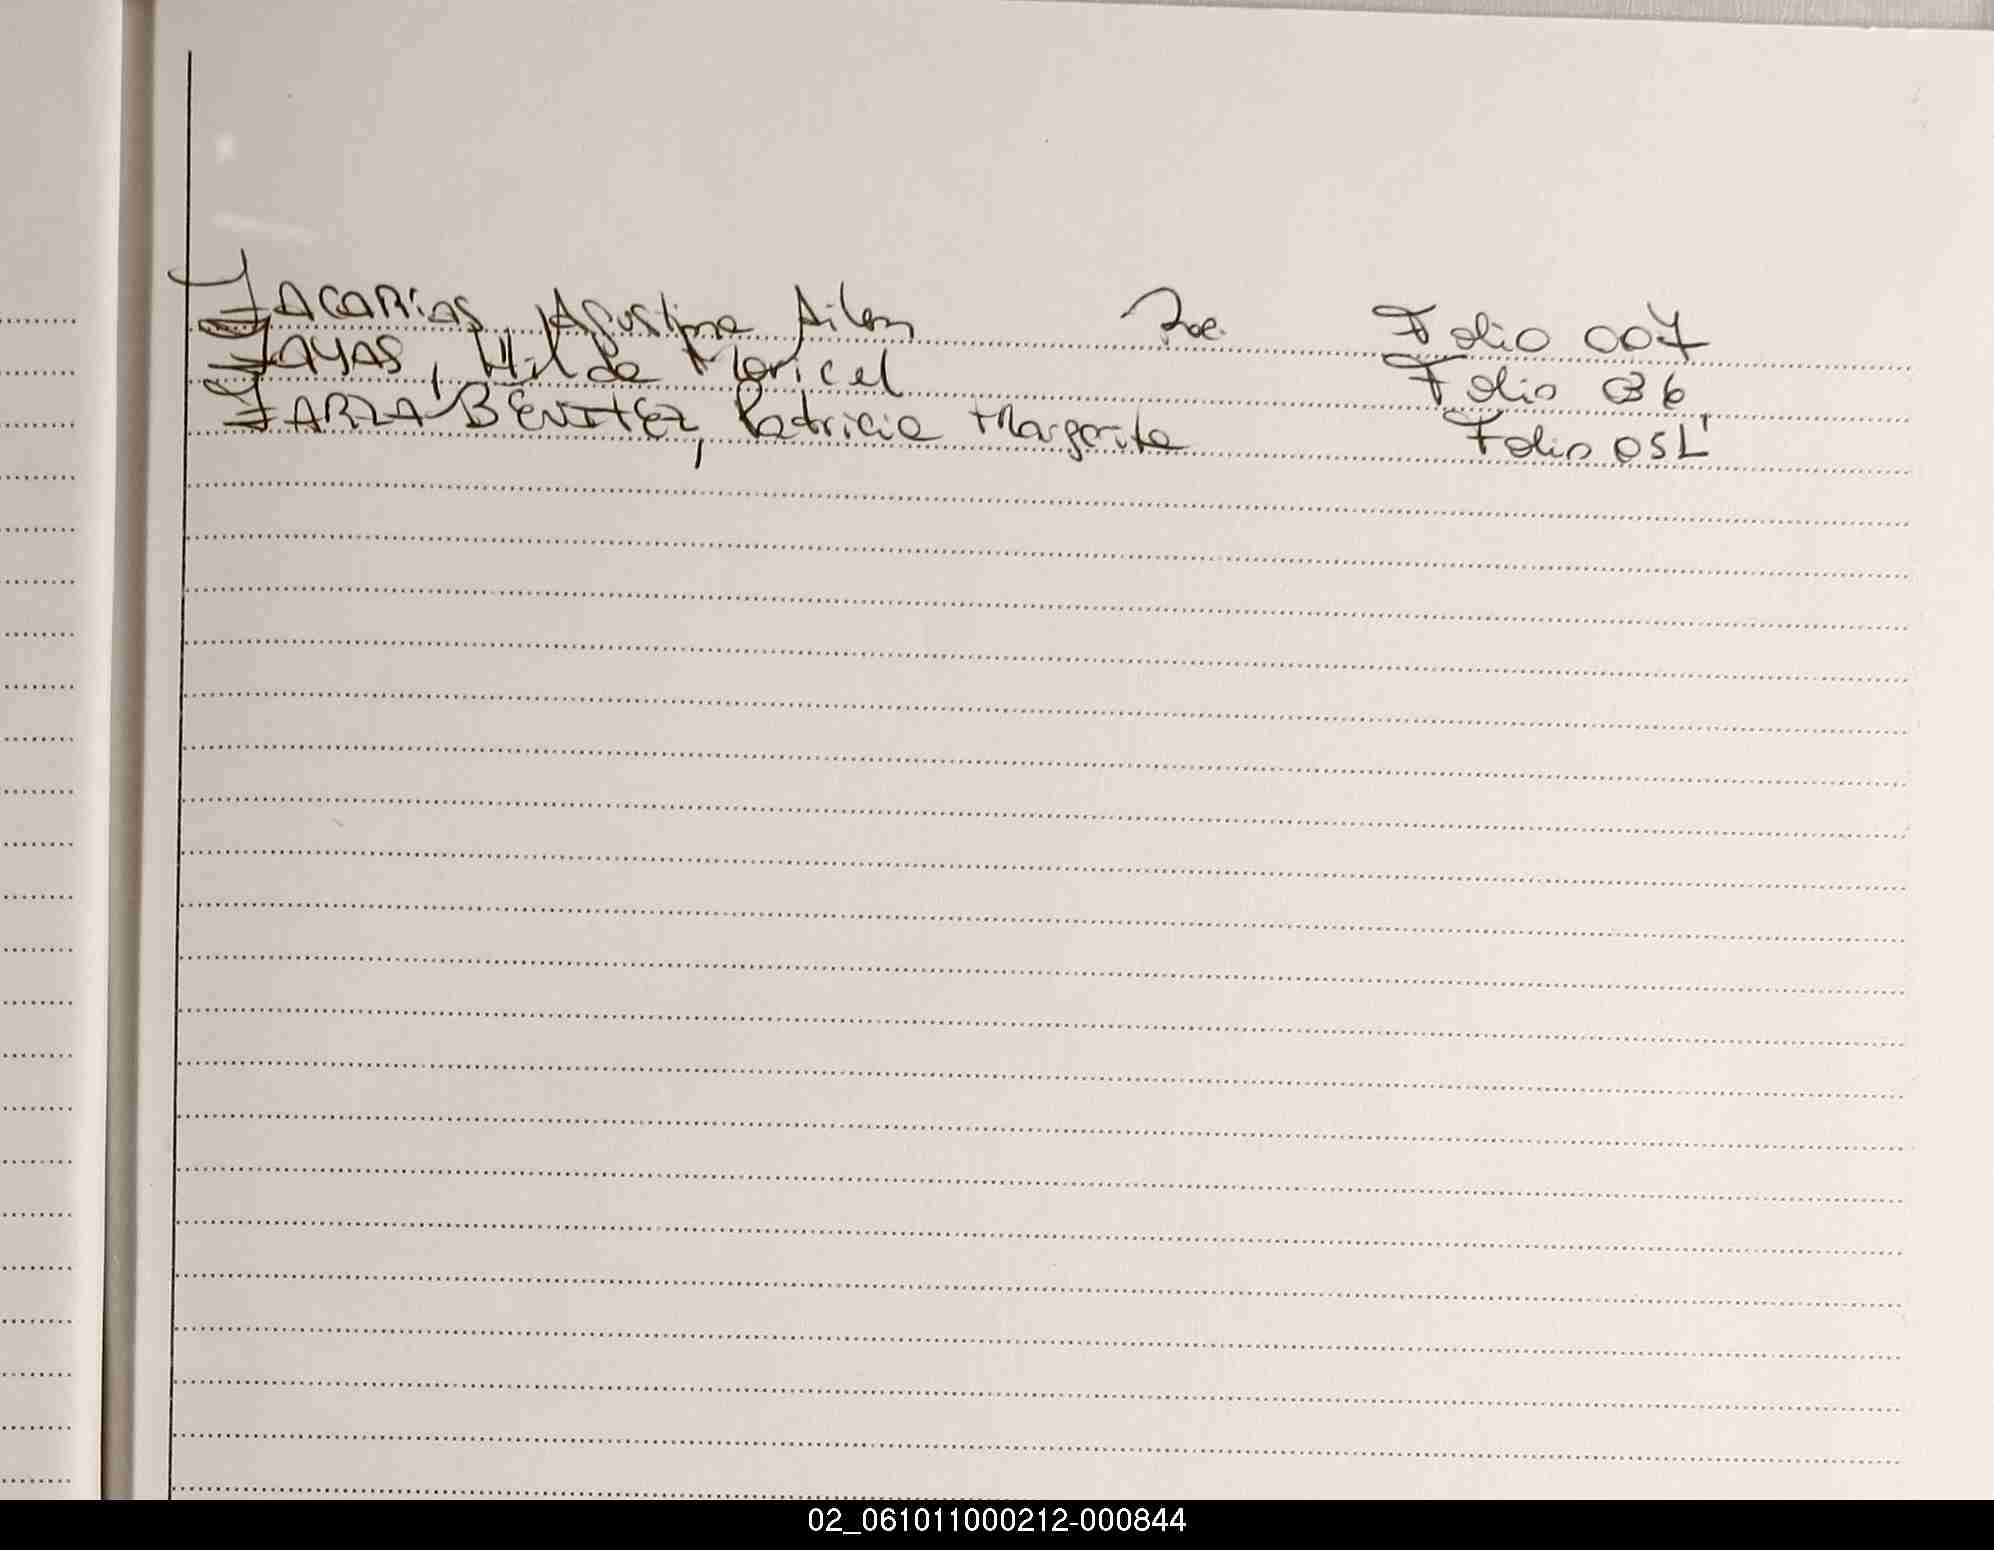 ZACARIAS, Agustina Ailen Zoe. Folio 007
ZAYAS, Hilda Maricel Folio 036
ZARZA BENITEZ, Patricia Margarita Folio
02_061011000212-000844